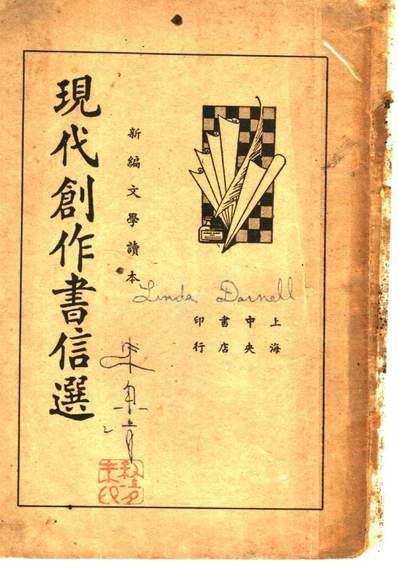 現代創作書信選
新編文學讀本
Linda Darnell
上海
中央
書店
印行